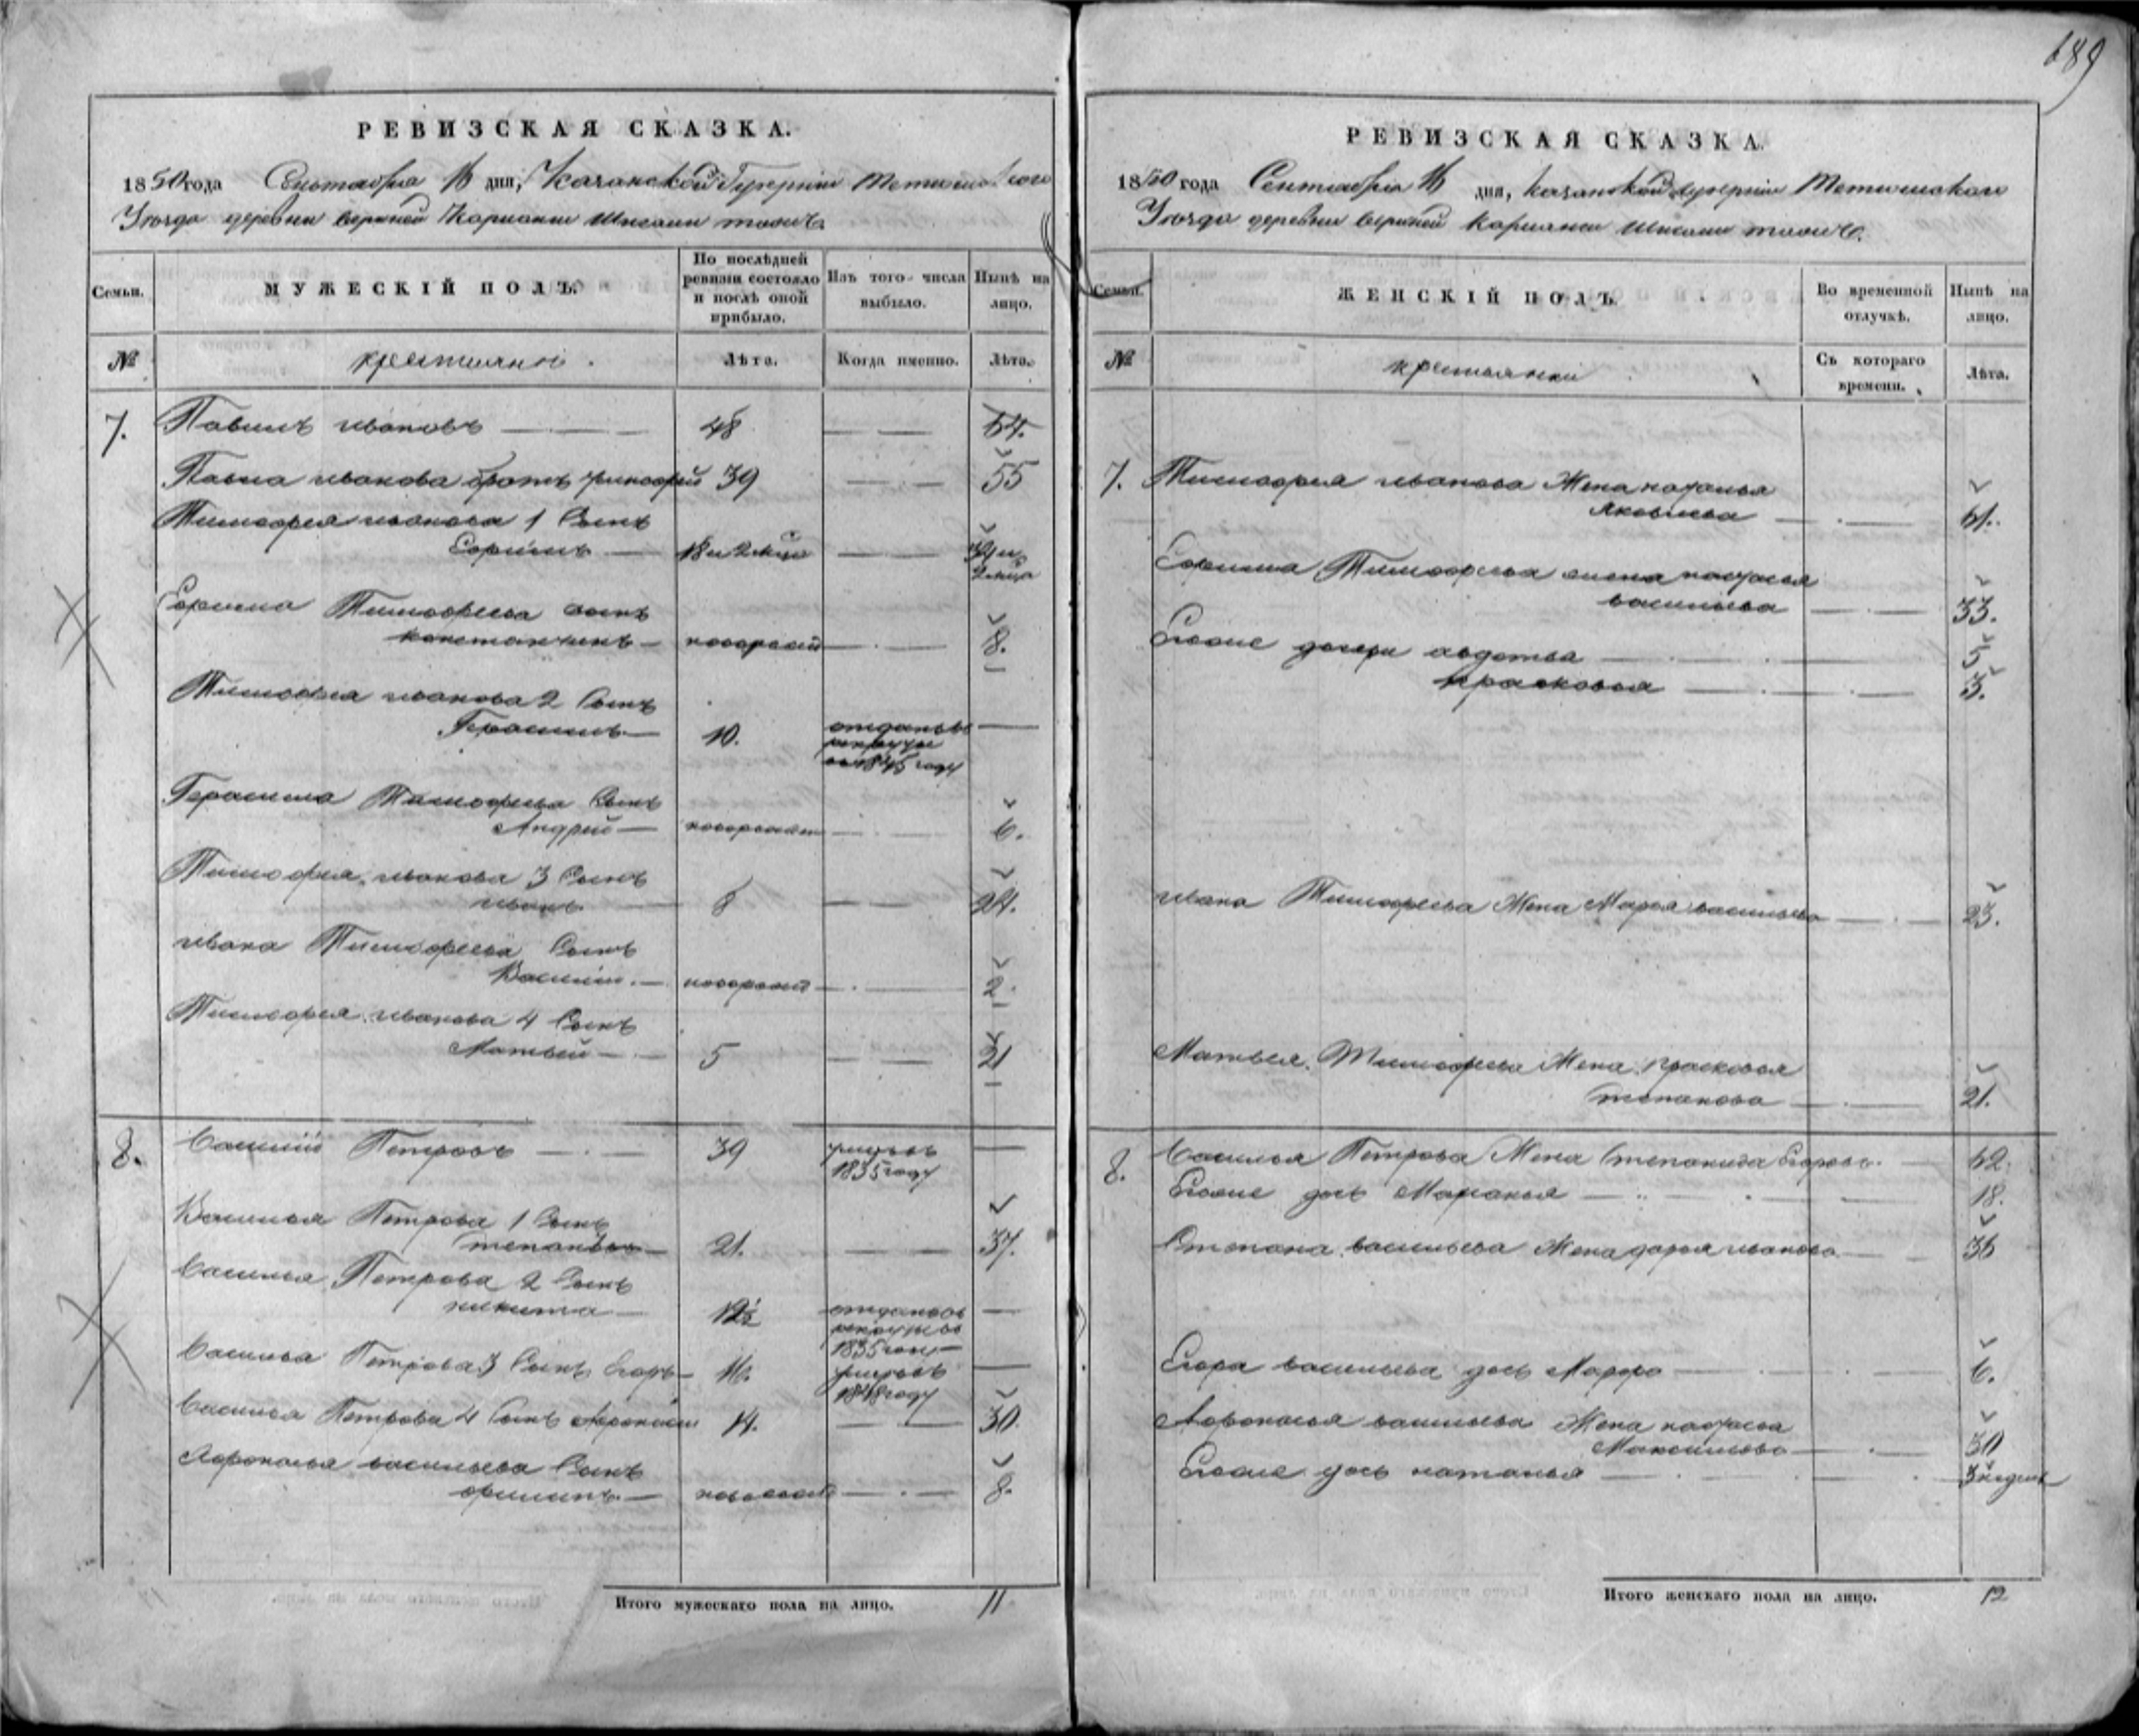 189
РЕВИЗСКАЯ СКАЗКА.
1850 года Сентября 16 дня, Казанской Губернии
Уезда деревни верхней
Семьи.
МУЖЕСКІЙ ПОЛЪ.
По послѣдней ревизіи состояло и послѣ оной прибыло.
Изъ того числа выбыло.
Нынѣ на лицо.
№
крестьяне
Лѣта.
Когда именно.
Лѣта.
7. Павилъ ивановъ 48 64.
Павла иванова братъ тимофей 39 55
Тимофея иванова 1 Сынъ
18 и 2 34 и
2
Тимофеева сынъ
константинъ новорож 8.
Тимофея иванова 2 Сынъ
Герасимъ 10. отданъ въ
рекруты
въ 1845 году
Герасима Тимофеева Сынъ
Андрей 6.
Тимофея иванова 3 Сынъ
иванъ 8 24.
ивана Тимофеева Сынъ
Василій новорож 2.
Тимофея иванова 4 Сынъ
Матвей 5 21
8. Василій Петровъ 39 умръ въ
1835 году
Василья Петрова 1 Сынъ
степанъ 21. 37.
Василья Петрова 2 Сынъ
никита 12½ отданъ въ
рекруты въ
1835 году
Василья Петрова 3 Сынъ Егоръ 16. умръ въ
1848 году
Василья Петрова 4 Сынъ Афонасій 14. 30.
Афонасья васильева Сынъ
филипъ 8.
Итого мужескаго пола на лицо. 11
РЕВИЗСКАЯ СКАЗКА.
1850 года Сентября 16 дня, казанской губерніи
Уезда деревни верхней
Семьи.
ЖЕНСКІЙ ПОЛЪ.
Во временной отлучкѣ.
Нынѣ на лицо.
№
крестьянки
Съ котораго времени.
Лѣта.
7. Тимофея иванова Жена
Яковлева 61.
Тимофеева жена настасья
васильева 33.
Евоие дочери авдотья 5
прасковья 3.
ивана Тимофеева Жена Марья васильева 23.
Матвея Тимофеева Жена прасковья
степанова 21.
8. Василья Петрова Жена Степанида Егорова 62.
Евоие дочь Маланья 18.
Степана васильева Жена дарья иванова 36
Егора васильева дочь Марфа 6.
Афонасья васильева Жена настасья
Максимова 30
Евоие дочь наталья 3 недель
Итого женскаго пола на лицо. 12